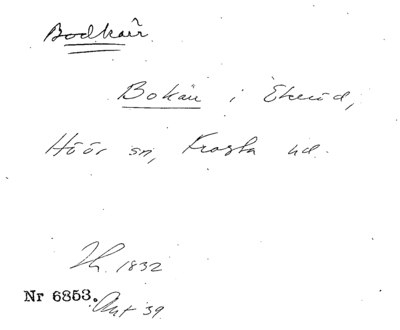 Bodkarr
Bokarr i Ekeröd,
Höör sn, Frosta hd.
Th. 1832
Nr 6853. Ant 39